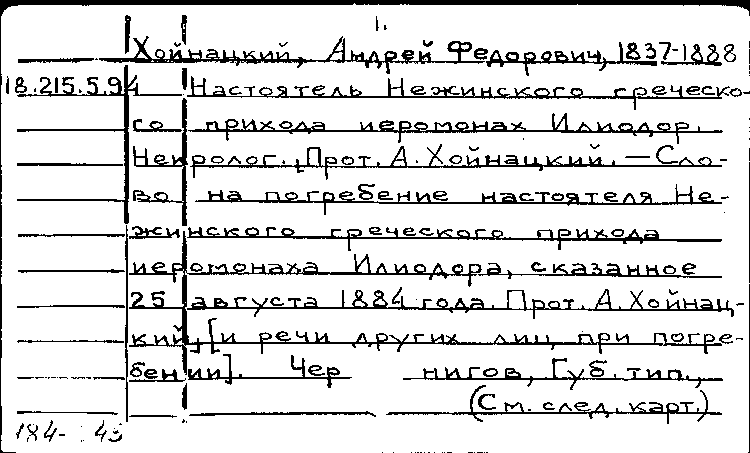 1.
Хойнацкий, Андрей Федорович, 1837-1888
18.215.5.94 Настоятель Нежинского греческо-
го прихода иеромонах Илиодор.
Некролог., Прот. А. Хойнацкий. — Сло-
во на погребение настоятеля Не-
жинского греческого прихода
иеромонаха Илиодора, сказанное
25 августа 1884 года. Прот. А. Хойнац-
кий, [и речи других лиц при погре-
бении]. Чер нигов, Губ. тип.,
(См. след. карт.)
184-